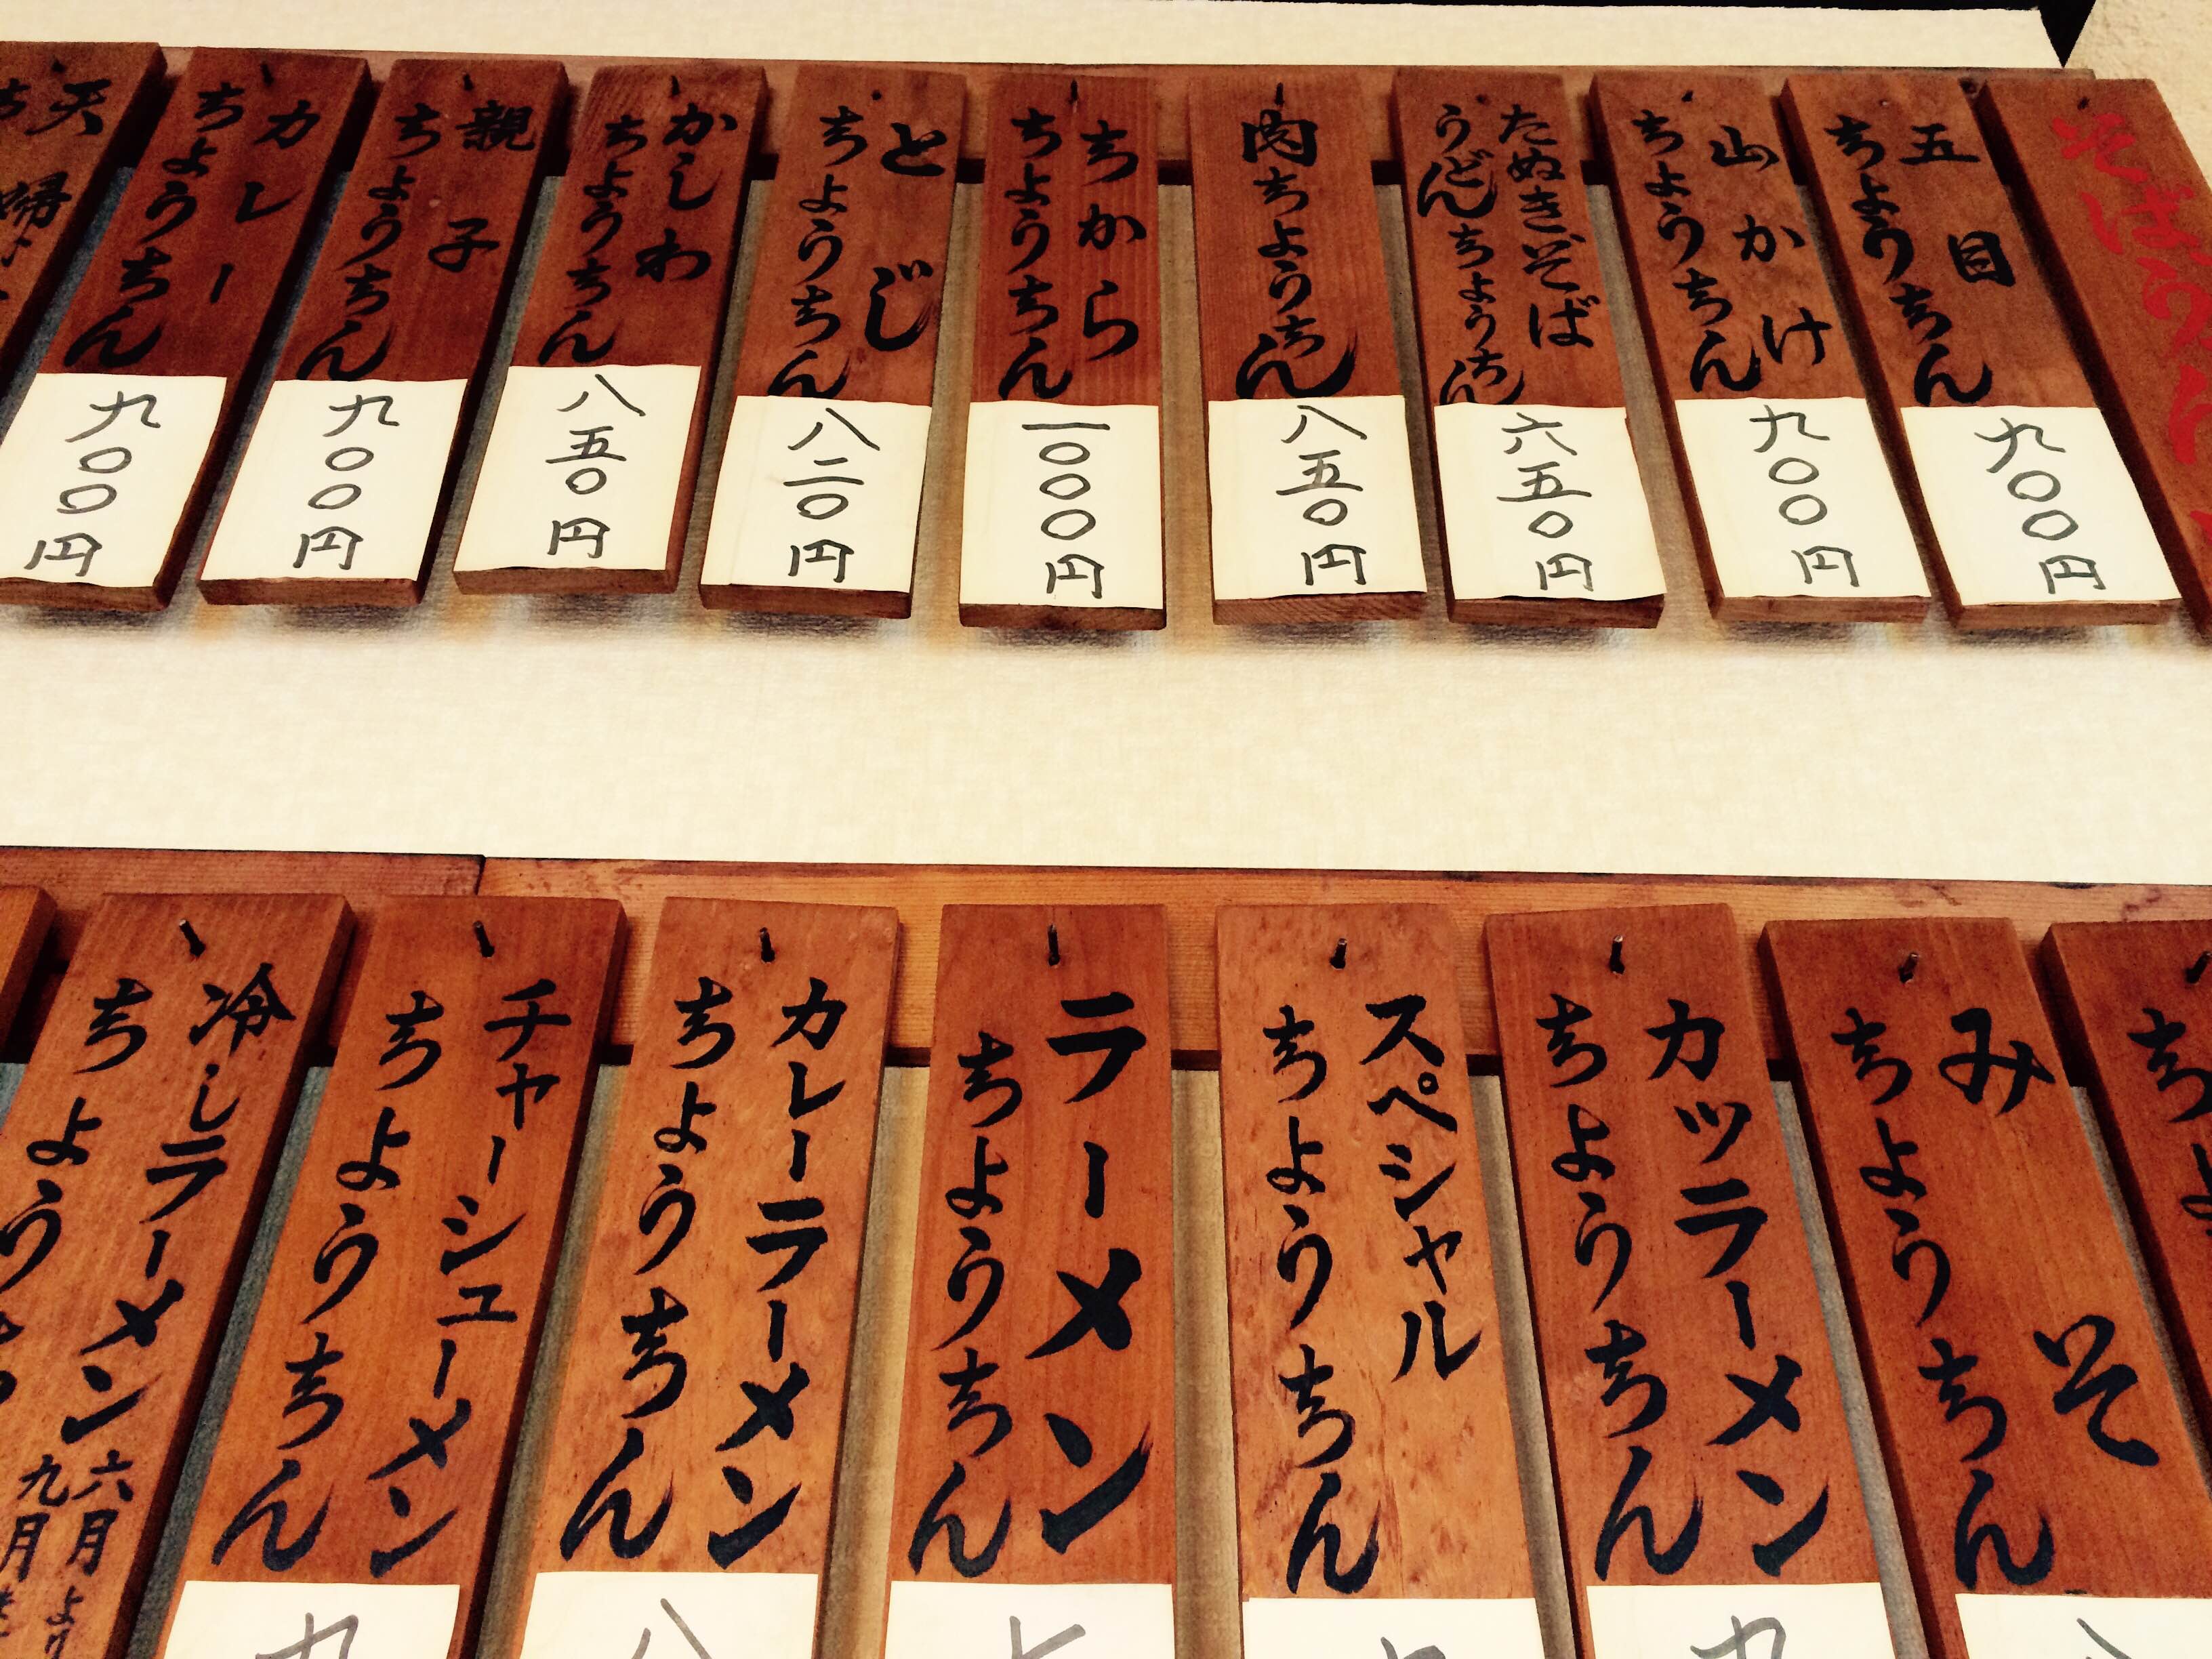 そばうどん
五目
ちようちん
九〇〇円
山かけ
ちようちん
九〇〇円
たぬきそば
うどんちようちん
六五〇円
肉ちようちん
八五〇円
ちから
ちようちん
一〇〇〇円
とじ
ちようちん
八二〇円
かしわ
ちようちん
八五〇円
親子
ちようちん
九〇〇円
カレー
ちようちん
九〇〇円
天婦
ち
みそ
ちようちん
八
カツラーメン
ちようちん
九
スペシャル
ちようちん
ラーメン
ちようちん
七
カレーラーメン
ちようちん
八
チャーシューメン
ちようちん
九
冷しラーメン
ちようち
六月より
九月ま